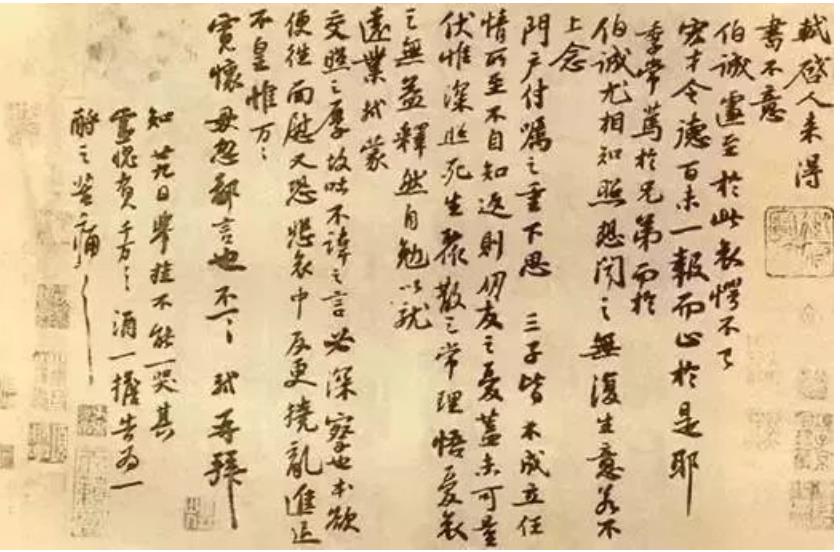 軾啓人來得
書不意
伯誠遽至於此哀愕不已
宏才令德百未一報而止於是耶
季常篤於兄弟而於
伯誠尤相知照想聞之無復生意若不
上念
門户付囑之重下思三子皆不成立任
情所至不自知返則朋友之憂蓋未可量
伏惟深照死生聚散之常理悟憂哀
之無益釋然自勉以就
遠業軾蒙
交照之厚故吐不諱之言必深察也本欲
便往面慰又恐悲哀中反更撓亂進退
不皇惟万万
寬懷毋忽鄙言也不一一軾再拜
知廿九日舉挂不能一哭其
靈愧負千万千万酒一擔告為一
酹之苦痛苦痛